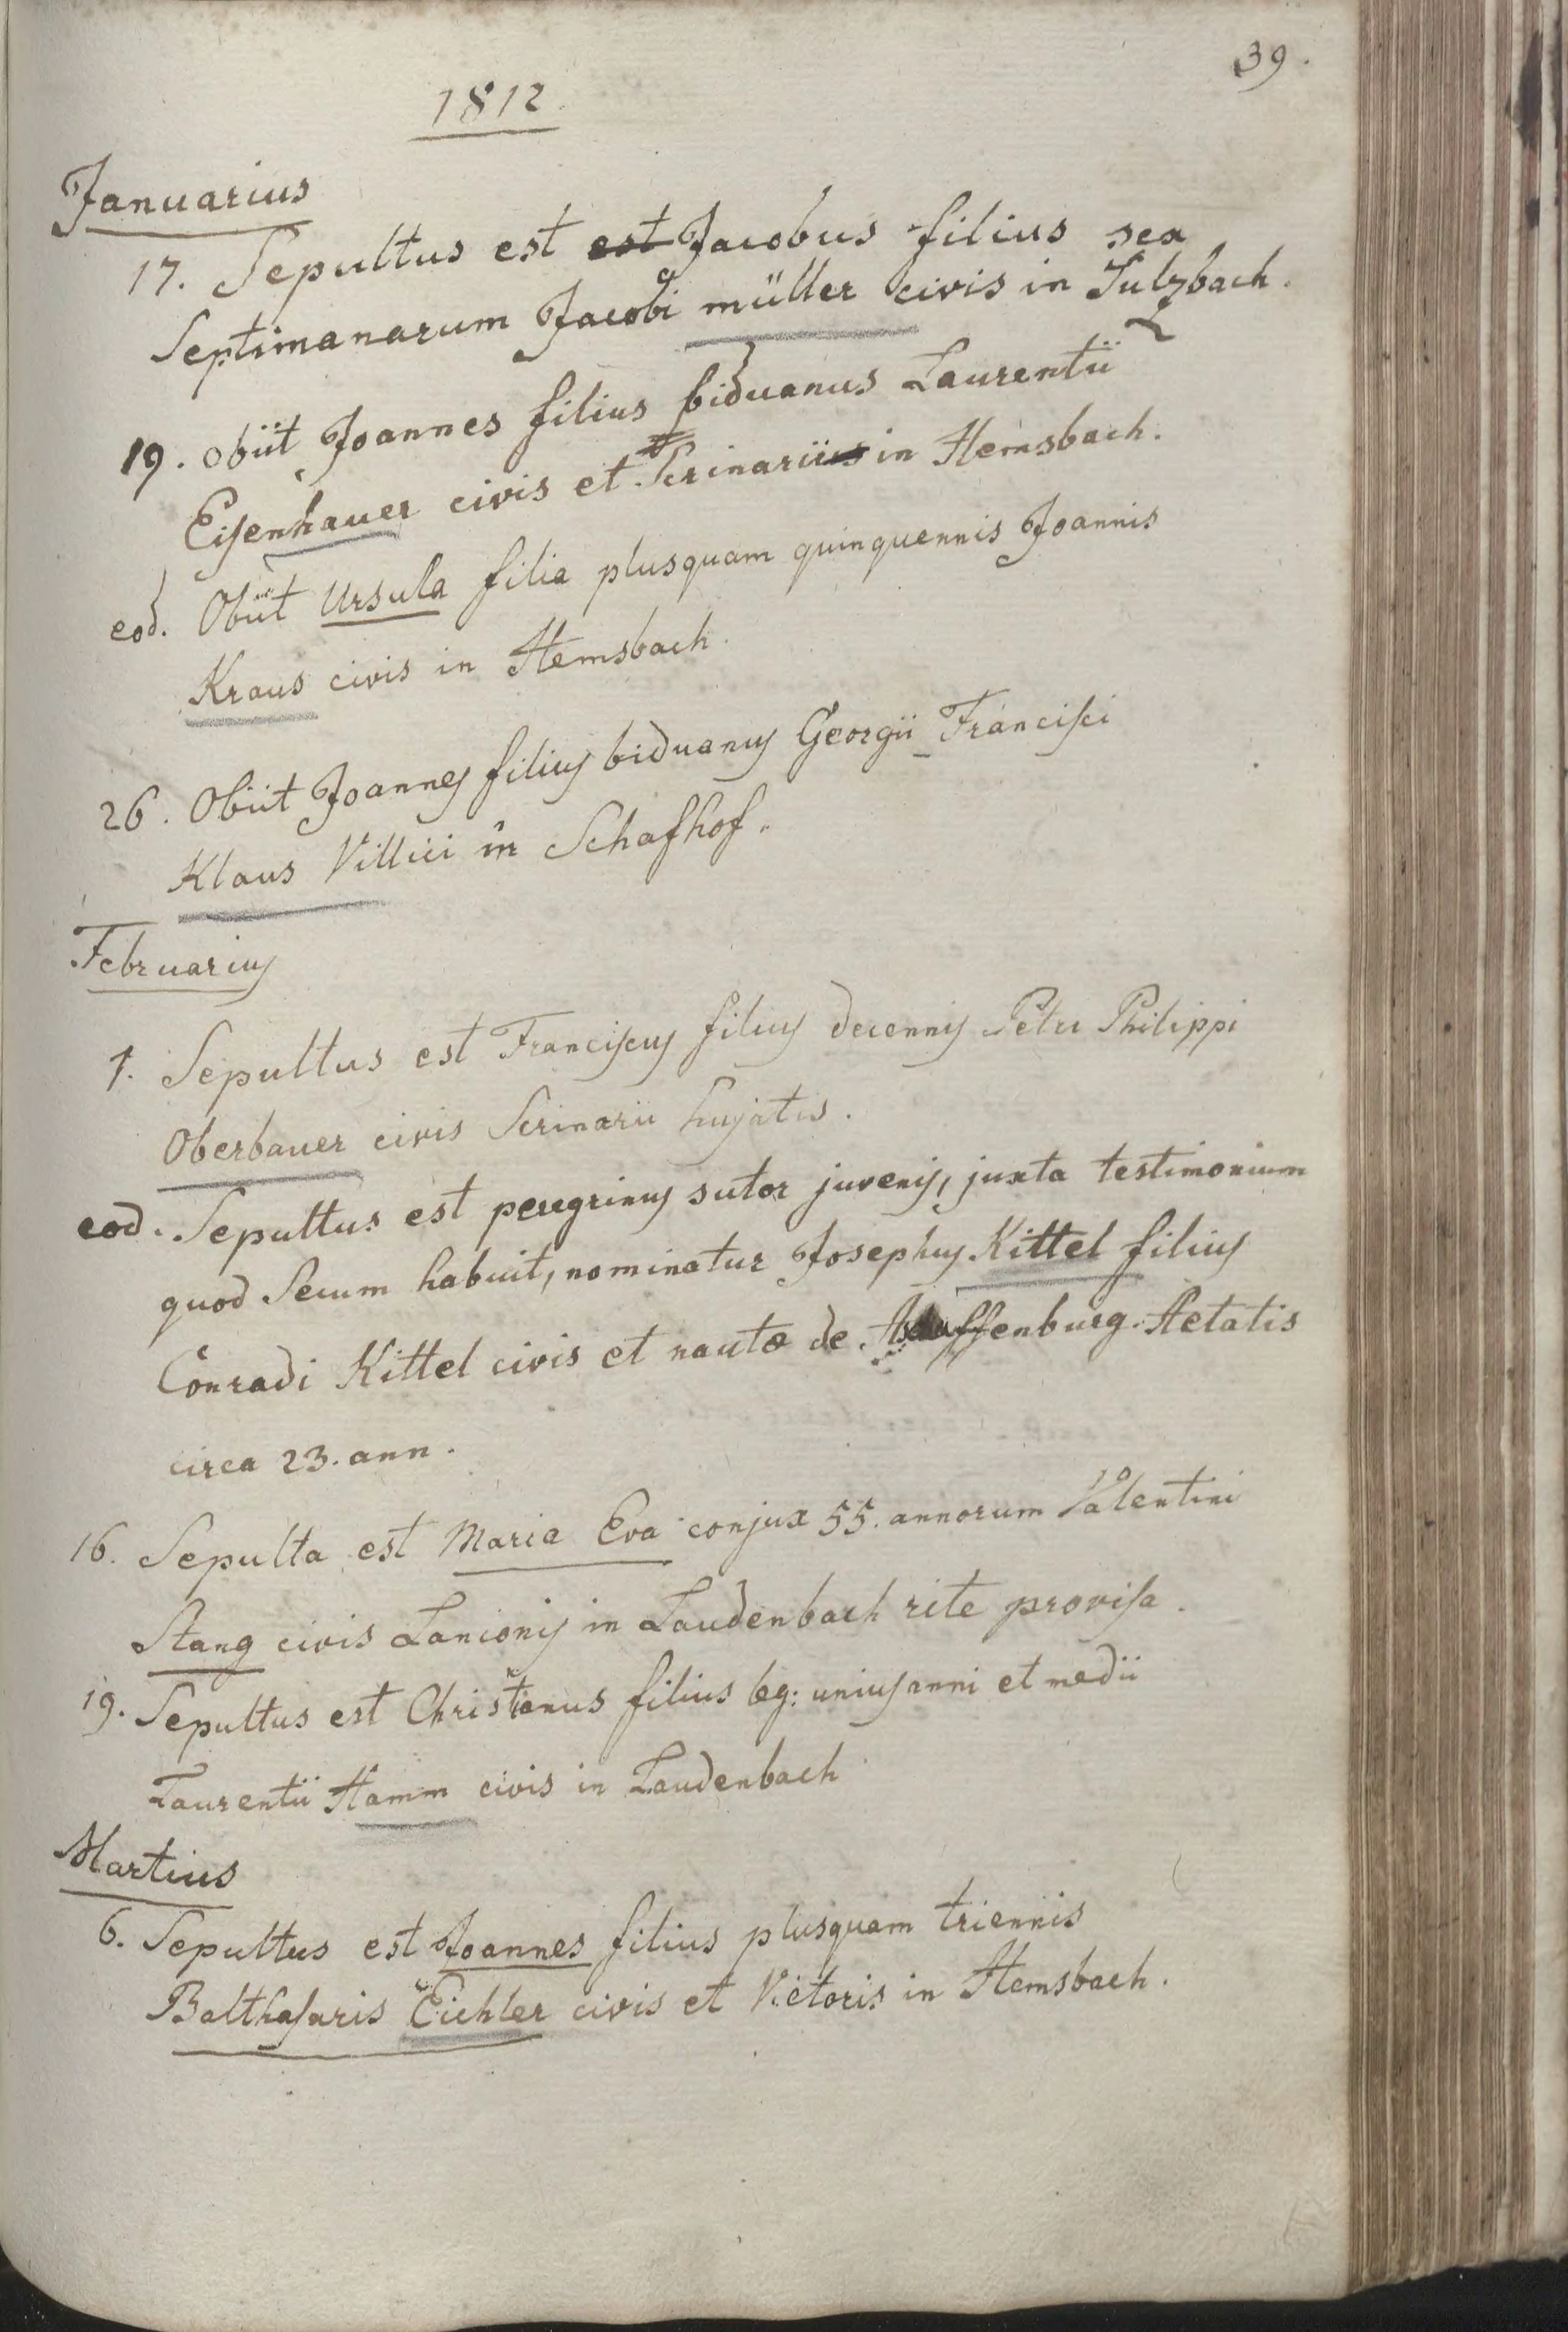 39.
1812.
Januarius
17. Sepultus est est Jacobus filius sex
Septimanarum Jacobi müller civis in Sulzbach.
19. obiit Joannes filius biduanus Laurentii
Eisenhauer civis et Scrinarii in Hemsbach.
eod. Obiit Ursula filia plusquam quinquennis Joannis
Kraus civis in Hemsbach.
26. Obiit Joannes filius biduanus Georgii Francisci
Klaus Villici in Schafhof.
Februarius
1. Sepultus est Franciscus filius decennis Petri Philippi
Oberbauer civis Scrinarii hujatis.
eod. Sepultus est peregrinus sutor juvenis, juxta testimonium
quod Secum habuit, nominatur Josephus Kittel filius
Conradi Kittel civis et nautæ de Aschaffenburg. Aetatis
circa 23. ann.
16. Sepulta est Maria Eva conjux 55. annorum Valentini
Stang civis Lanionis in Laudenbach rite provisa.
19. Sepultus est Christianus filius leg: unius anni et medii
Laurentii Hamm civis in Laudenbach
Martius
6. Sepultus est Joannes filius plusquam triennis
Balthasaris Eichler civis et Vietoris in Hemsbach.